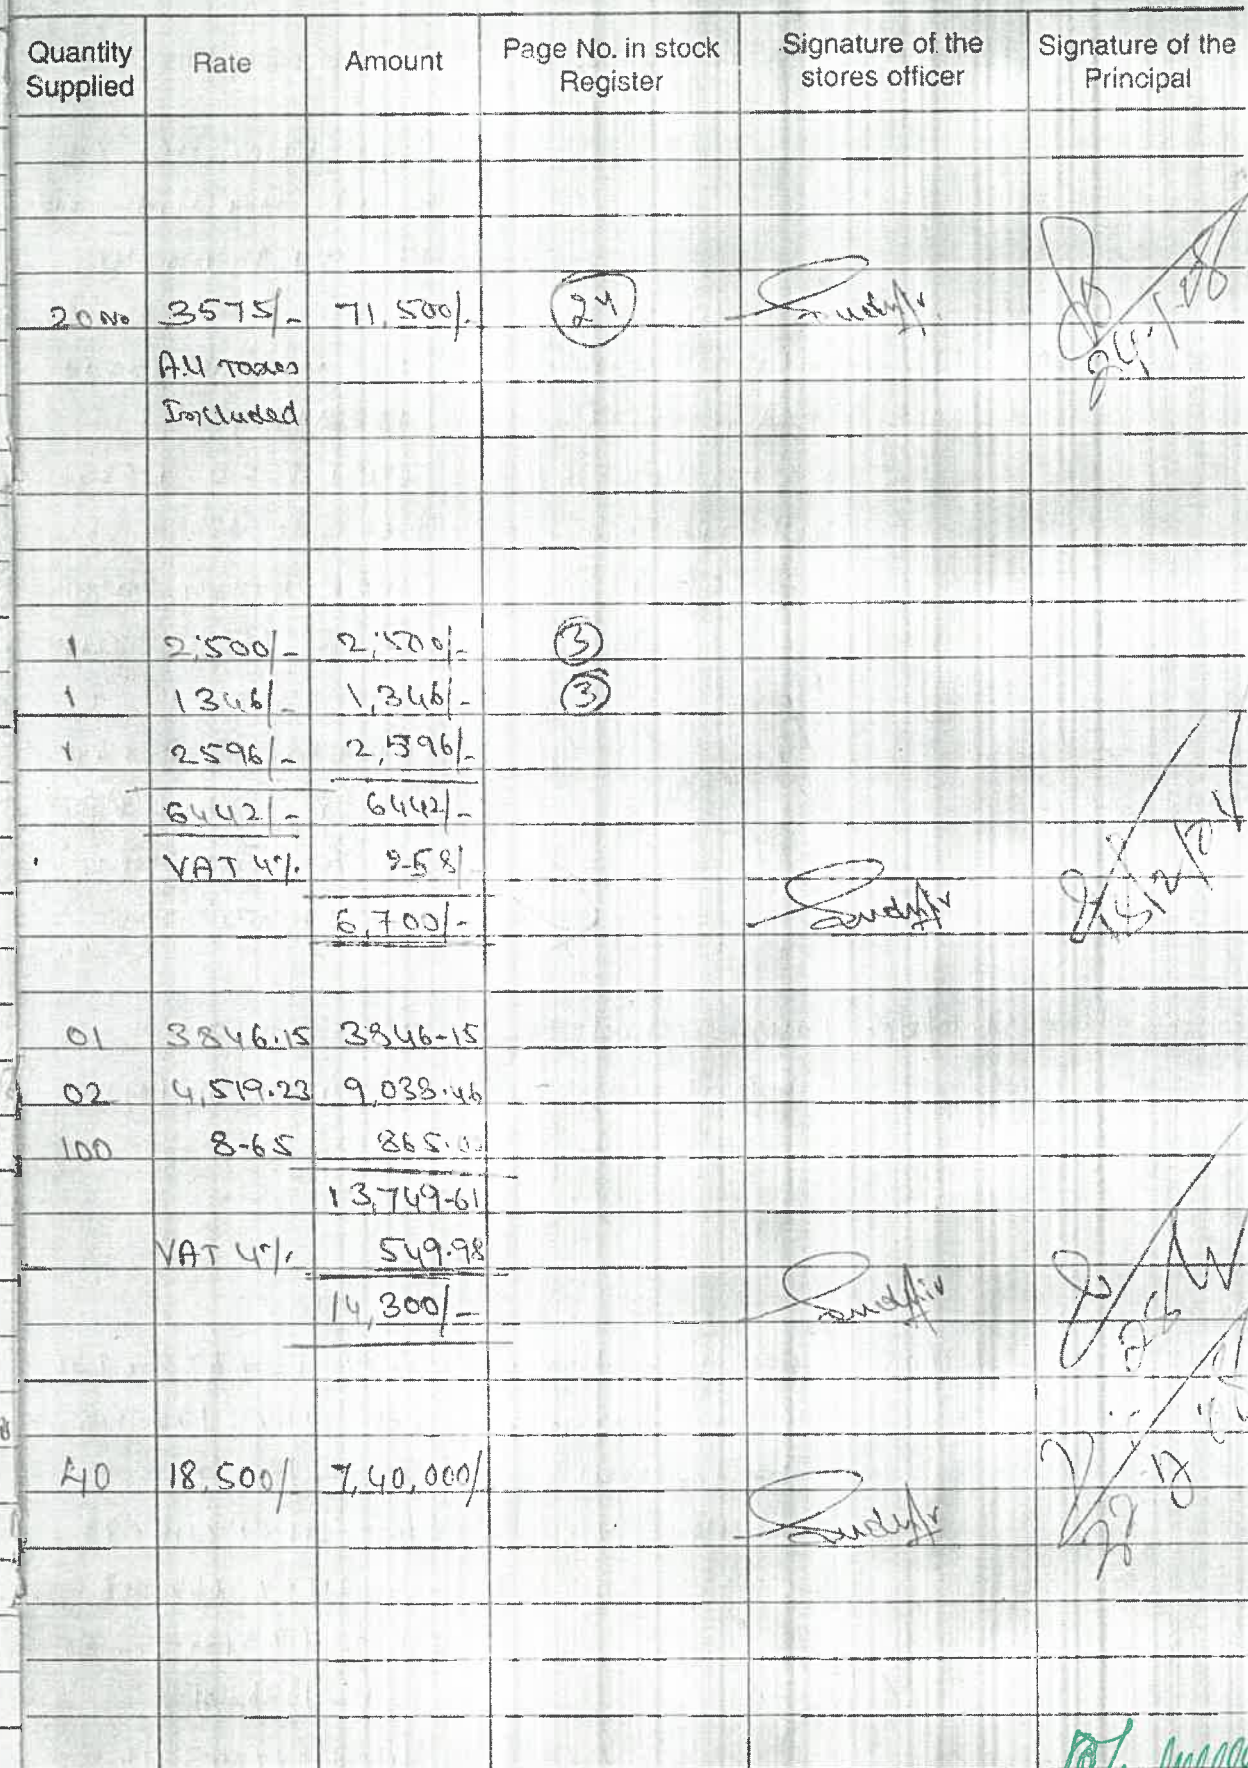 Quantity Supplied Rate Amount Page No. in stock Register Signature of the stores officer Signature of the Principal
20 No 3575/- 71,500/- 24
All Taxes
Included
1 2,500/- 2,500/- 3
1 1346/- 1,346/- 3
1 2596/- 2,596/-
6442/- 6442/-
VAT 4% 258/
6,700/-
01 3846.15 3846-15
02 4,519.23 9,038.46
100 8-65 865.0
13,749-61
VAT 4% 549.98
14,300/-
40 18,500/ 7,40,000/